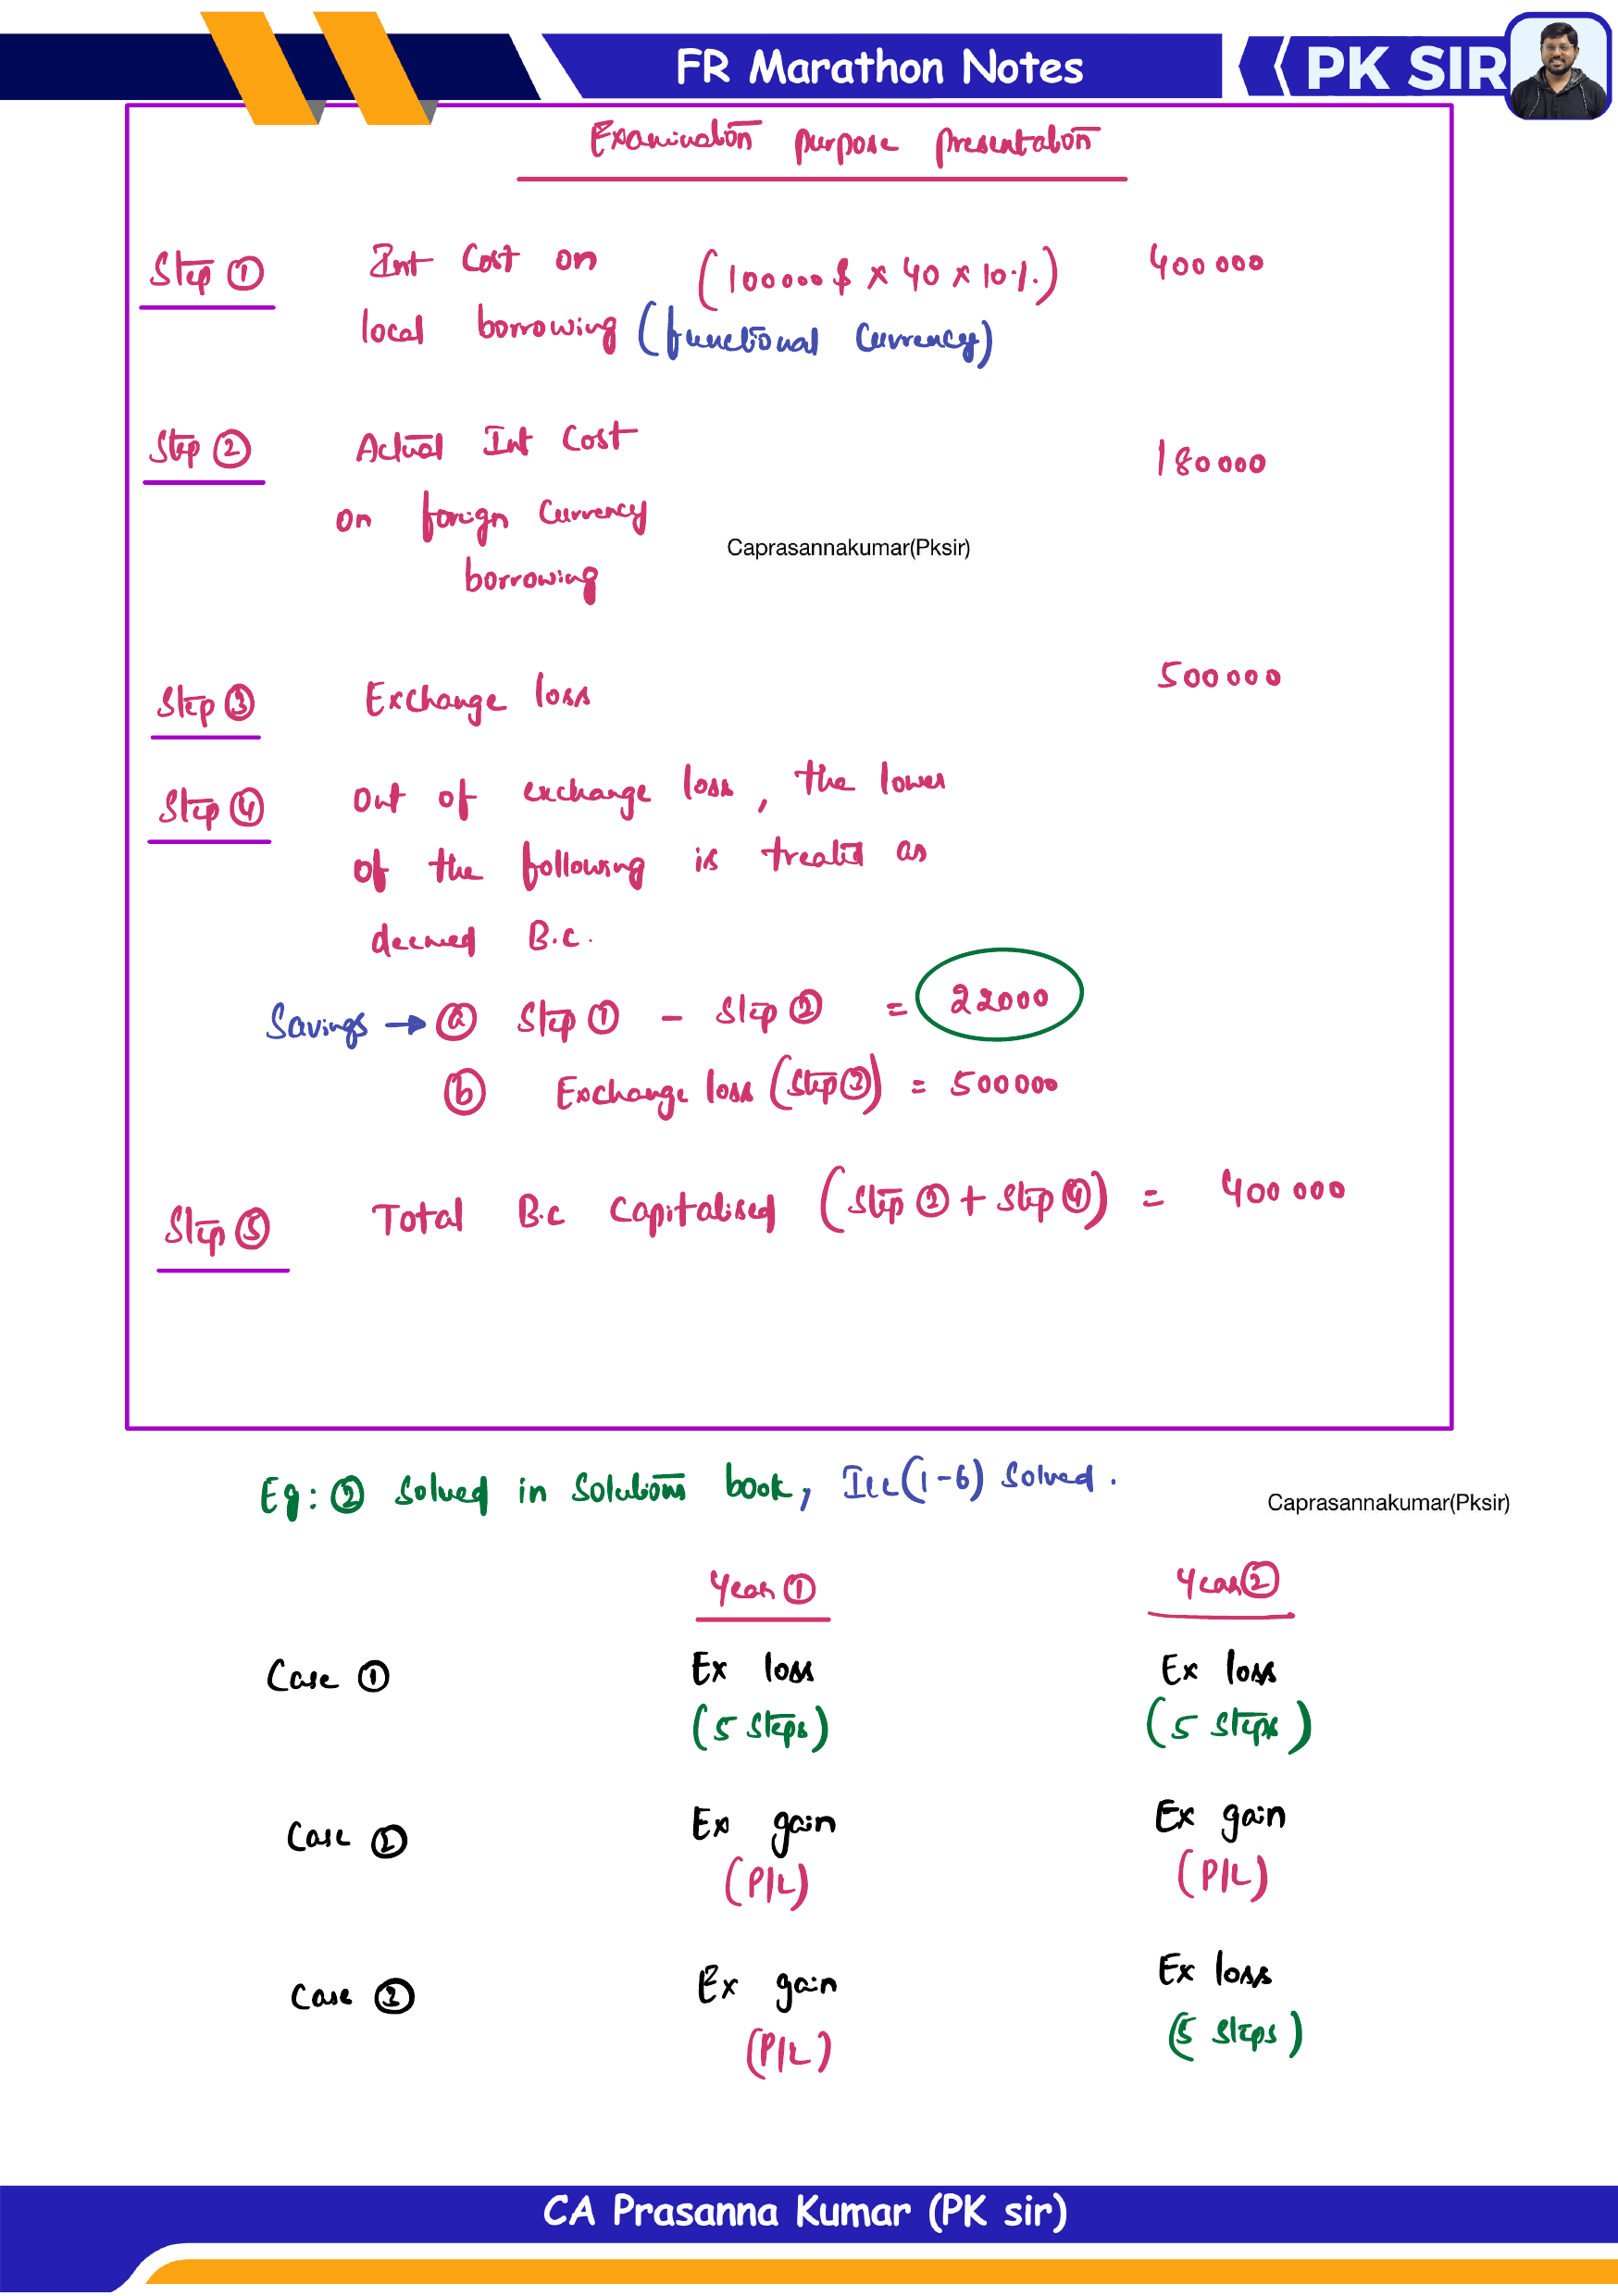 FR Marathon Notes
PK SIR
Examination purpose presentation
Step ① Int Cost on (100000 $ × 40 × 10%.) 400 000
local borrowing (functional Currency)
Step ② Actual Int Cost 180 000
on foreign Currency
Caprasannakumar(Pksir)
borrowing
Step ③ Exchange loss 500 000
Step ④ Out of exchange loss, the lower
of the following is treated as
deemed B.C.
Savings → ⓐ Step ① - Step ② = 22000
ⓑ Exchange loss (Step ③) = 500 000
Step ⑤ Total B.c Capitalised (Step ② + Step ④) = 400 000
Eg: ② Solved in Solutions book, Ill (1-6) Solved.
Caprasannakumar(Pksir)
Year ① Year ②
Case ① Ex loss Ex loss
(5 Steps) (5 Steps)
Case ② Ex gain Ex gain
(P/L) (P/L)
Case ③ Ex gain Ex loss
(P/L) (5 Steps)
CA Prasanna Kumar (PK sir)